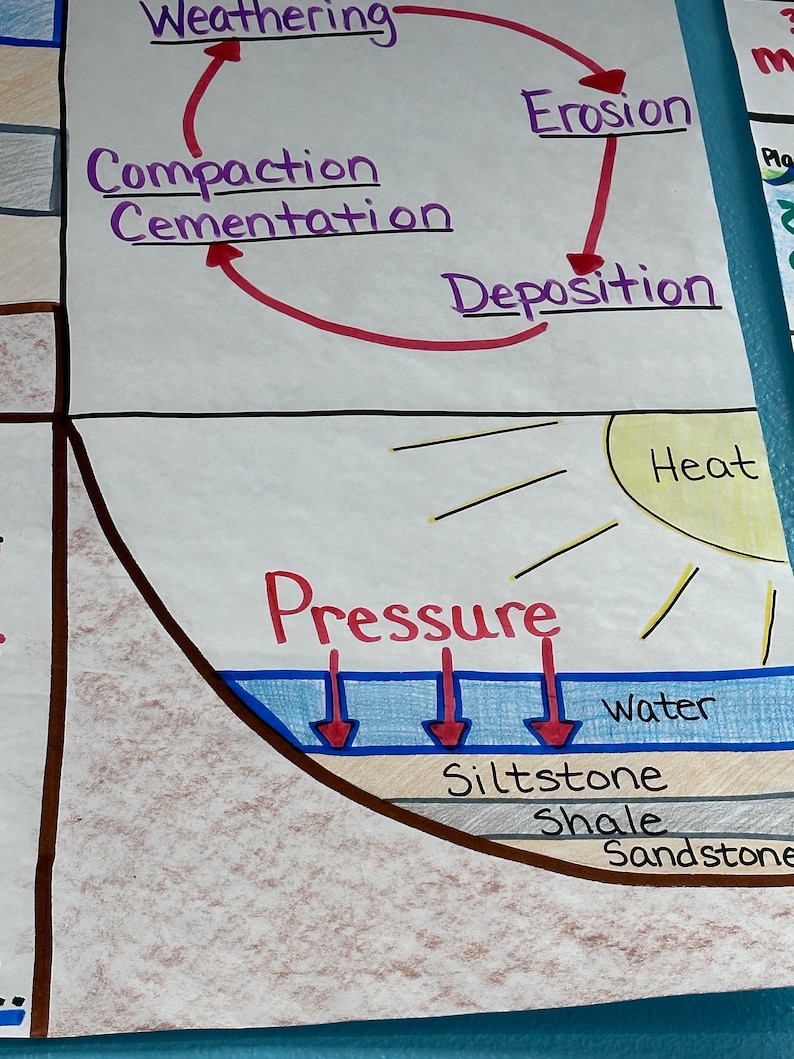 Weathering
Erosion
Compaction
Cementation
Deposition
Heat
Pressure
Water
Siltstone
Shale
Sandstone